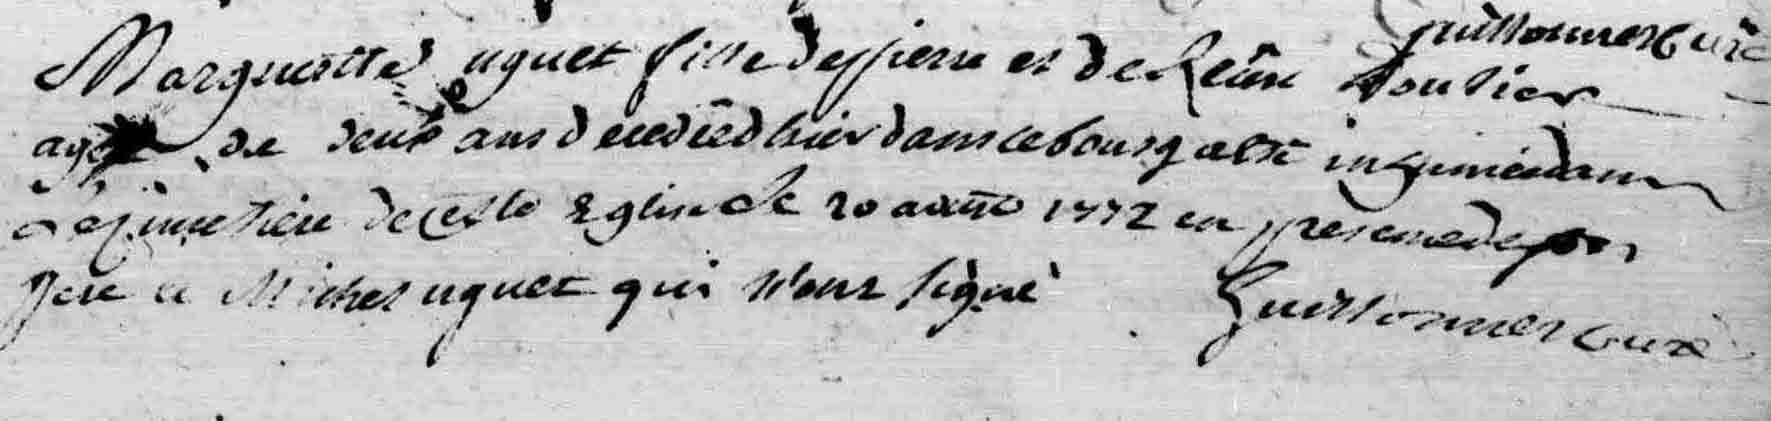 Guillonner Curé
Margueritte uguet fille de pierre et de Reine Soulier
agée de deux ans decedée d hier dans ce bourg a esté inhumée dans
le cimetiere de cette Eglise le 20 aoust 1772 en presence de son
pere et Michel uguet qui n'ont signé
Guillonner curé